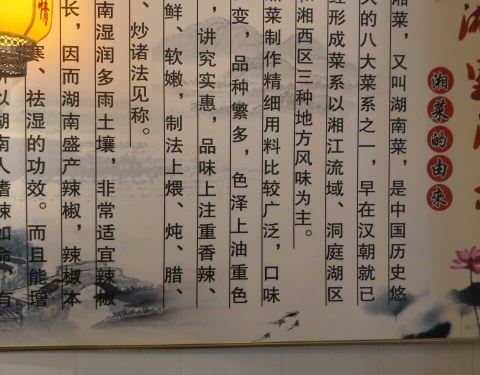 湘菜的由来
湘菜，又叫湖南菜，是中国历史悠
久的八大菜系之一，早在汉朝就已
经形成菜系以湘江流域、洞庭湖区
和湘西区三种地方风味为主。
菜制作精细用料比较广泛，口味
变，品种繁多，色泽上油重色
，讲究实惠，品味上注重香辣、
鲜、软嫩，制法上煨、炖、腊、
、炒诸法见称。
南湿润多雨土壤，非常适宜辣椒
长，因而湖南盛产辣椒，辣椒本
寒、祛湿的功效。而且能增
以湖南人嗜辣如命，有
情